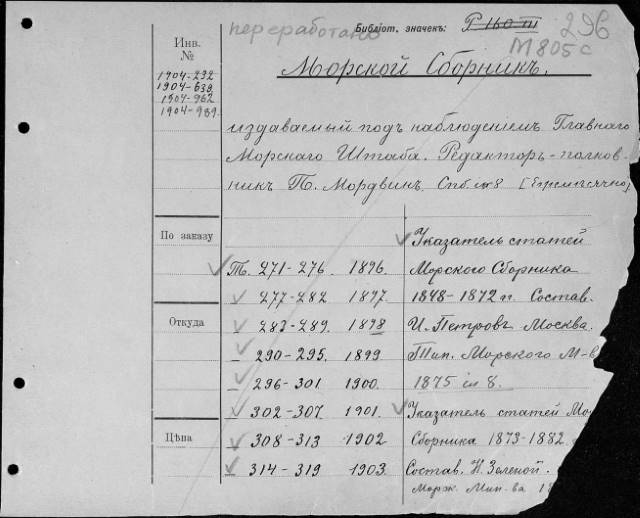 переработано
Библіот. значекъ: Р 160 III
296
М 805 с
Инв.
№
1904-232
1904-638
1904-962
1904-989
Морской Сборникъ.
издаваемый подъ наблюденіемъ Главнаго
Морскаго Штаба. Редакторъ-полков-
никъ П. Мордвин. Спб. in 8 [Ежемѣсячно]
По заказу
Откуда
Цѣна
Т. 271-276 1896.
277-282 1897.
283-289. 1898
290-295. 1899
296-301 1900.
302-307 1901.
308-313 1902
314-319 1903.
Указатель статей
Морского Сборника
1848-1872 гг. Состав.
И. Петровъ Москва.
Тип. Морского М-в
1875 in 8.
Указатель статей Мор
Сборника 1873-1882
Состав. Н. Зеленой.
Морж. Мин-ва